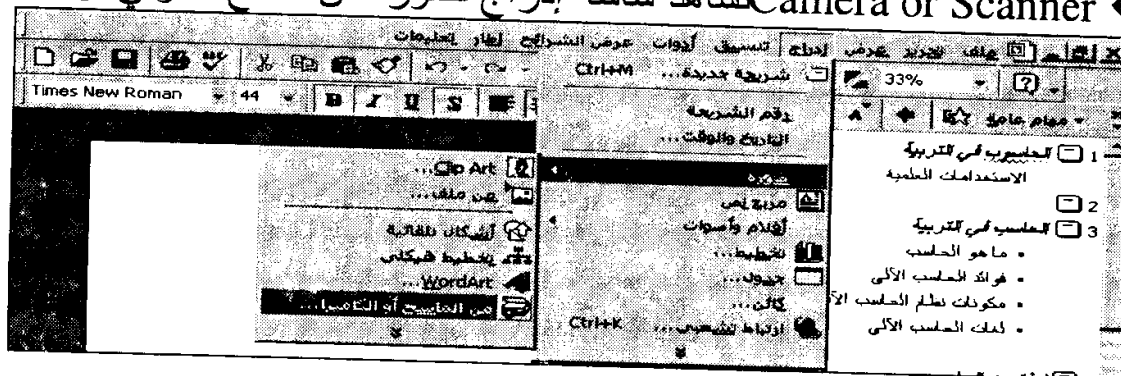 Camera or Scanner
ملف تحرير عرض إدراج تنسيق أدوات عرض الشرائح إطار تعليمات
33%
Times New Roman 44
مهام عامة
شريحة جديدة... Ctrl+M
رقم الشريحة
التاريخ والوقت...
صورة
مربع نص
أفلام وأصوات
تخطيط...
جدول...
كائن...
ارتباط تشعبي... Ctrl+K
Clip Art...
من ملف...
أشكال تلقائية
تخطيط هيكلي
WordArt...
من الماسح أو الكاميرا...
1 الحاسوب في التربية
الاستخدامات العلمية
2
3 الحاسب في التربية
• ما هو الحاسب
• فوائد الحاسب الآلي
• مكونات نظام الحاسب الآ
• لغات الحاسب الآلي